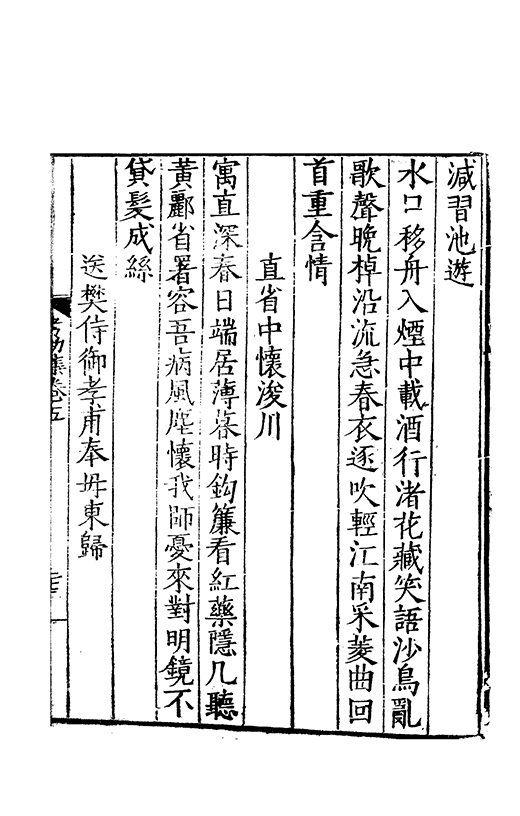 減習池遊
水口移舟入煙中載酒行渚花藏笑語沙鳥亂
歌聲晩棹沿流急春衣逐吹輕江南采菱曲回
首重含情
直省中懷浚川
寓直深春日端居薄暮時鈎簾看紅藥隱几聽
黃鸝省署容吾病風塵懷我師憂來對明鏡不
貸髮成絲
送樊侍御孝甫奉毋東歸
集卷五